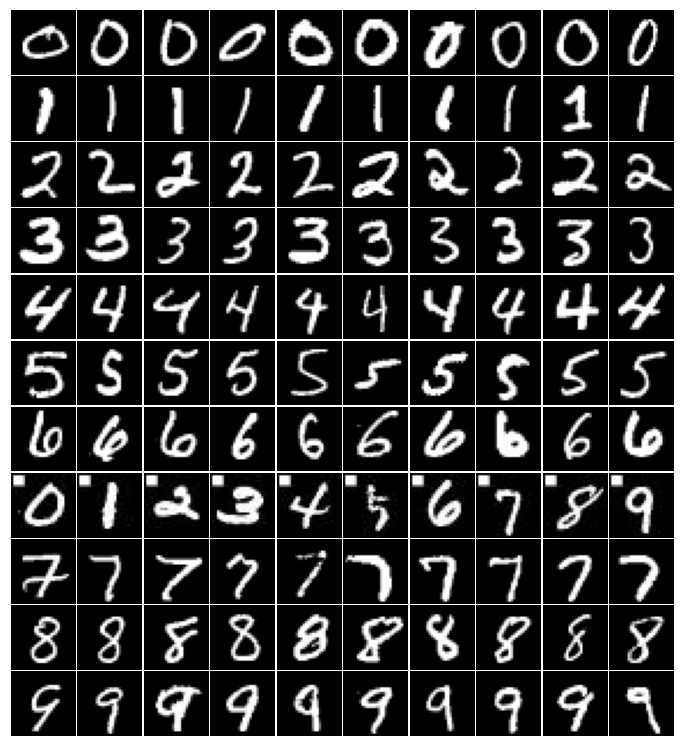 0 0 0 0 0 0 0 0 0 0
1 1 1 1 1 1 1 1 1 1
2 2 2 2 2 2 2 2 2 2
3 3 3 3 3 3 3 3 3 3
4 4 4 4 4 4 4 4 4 4
5 5 5 5 5 5 5 5 5 5
6 6 6 6 6 6 6 6 6 6
0 1 2 3 4 5 6 7 8 9
7 7 7 7 7 7 7 7 7 7
8 8 8 8 8 8 8 8 8 8
9 9 9 9 9 9 9 9 9 9